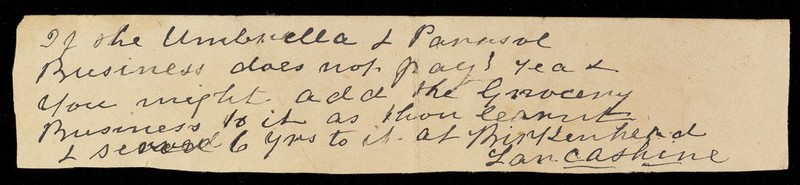 If the Umbrella & Parrasol
Business does not pay! yea &
You might add the Grocery
Business to it as thou learnt
& served 6 yrs to it at Birkenhead
Lancashine